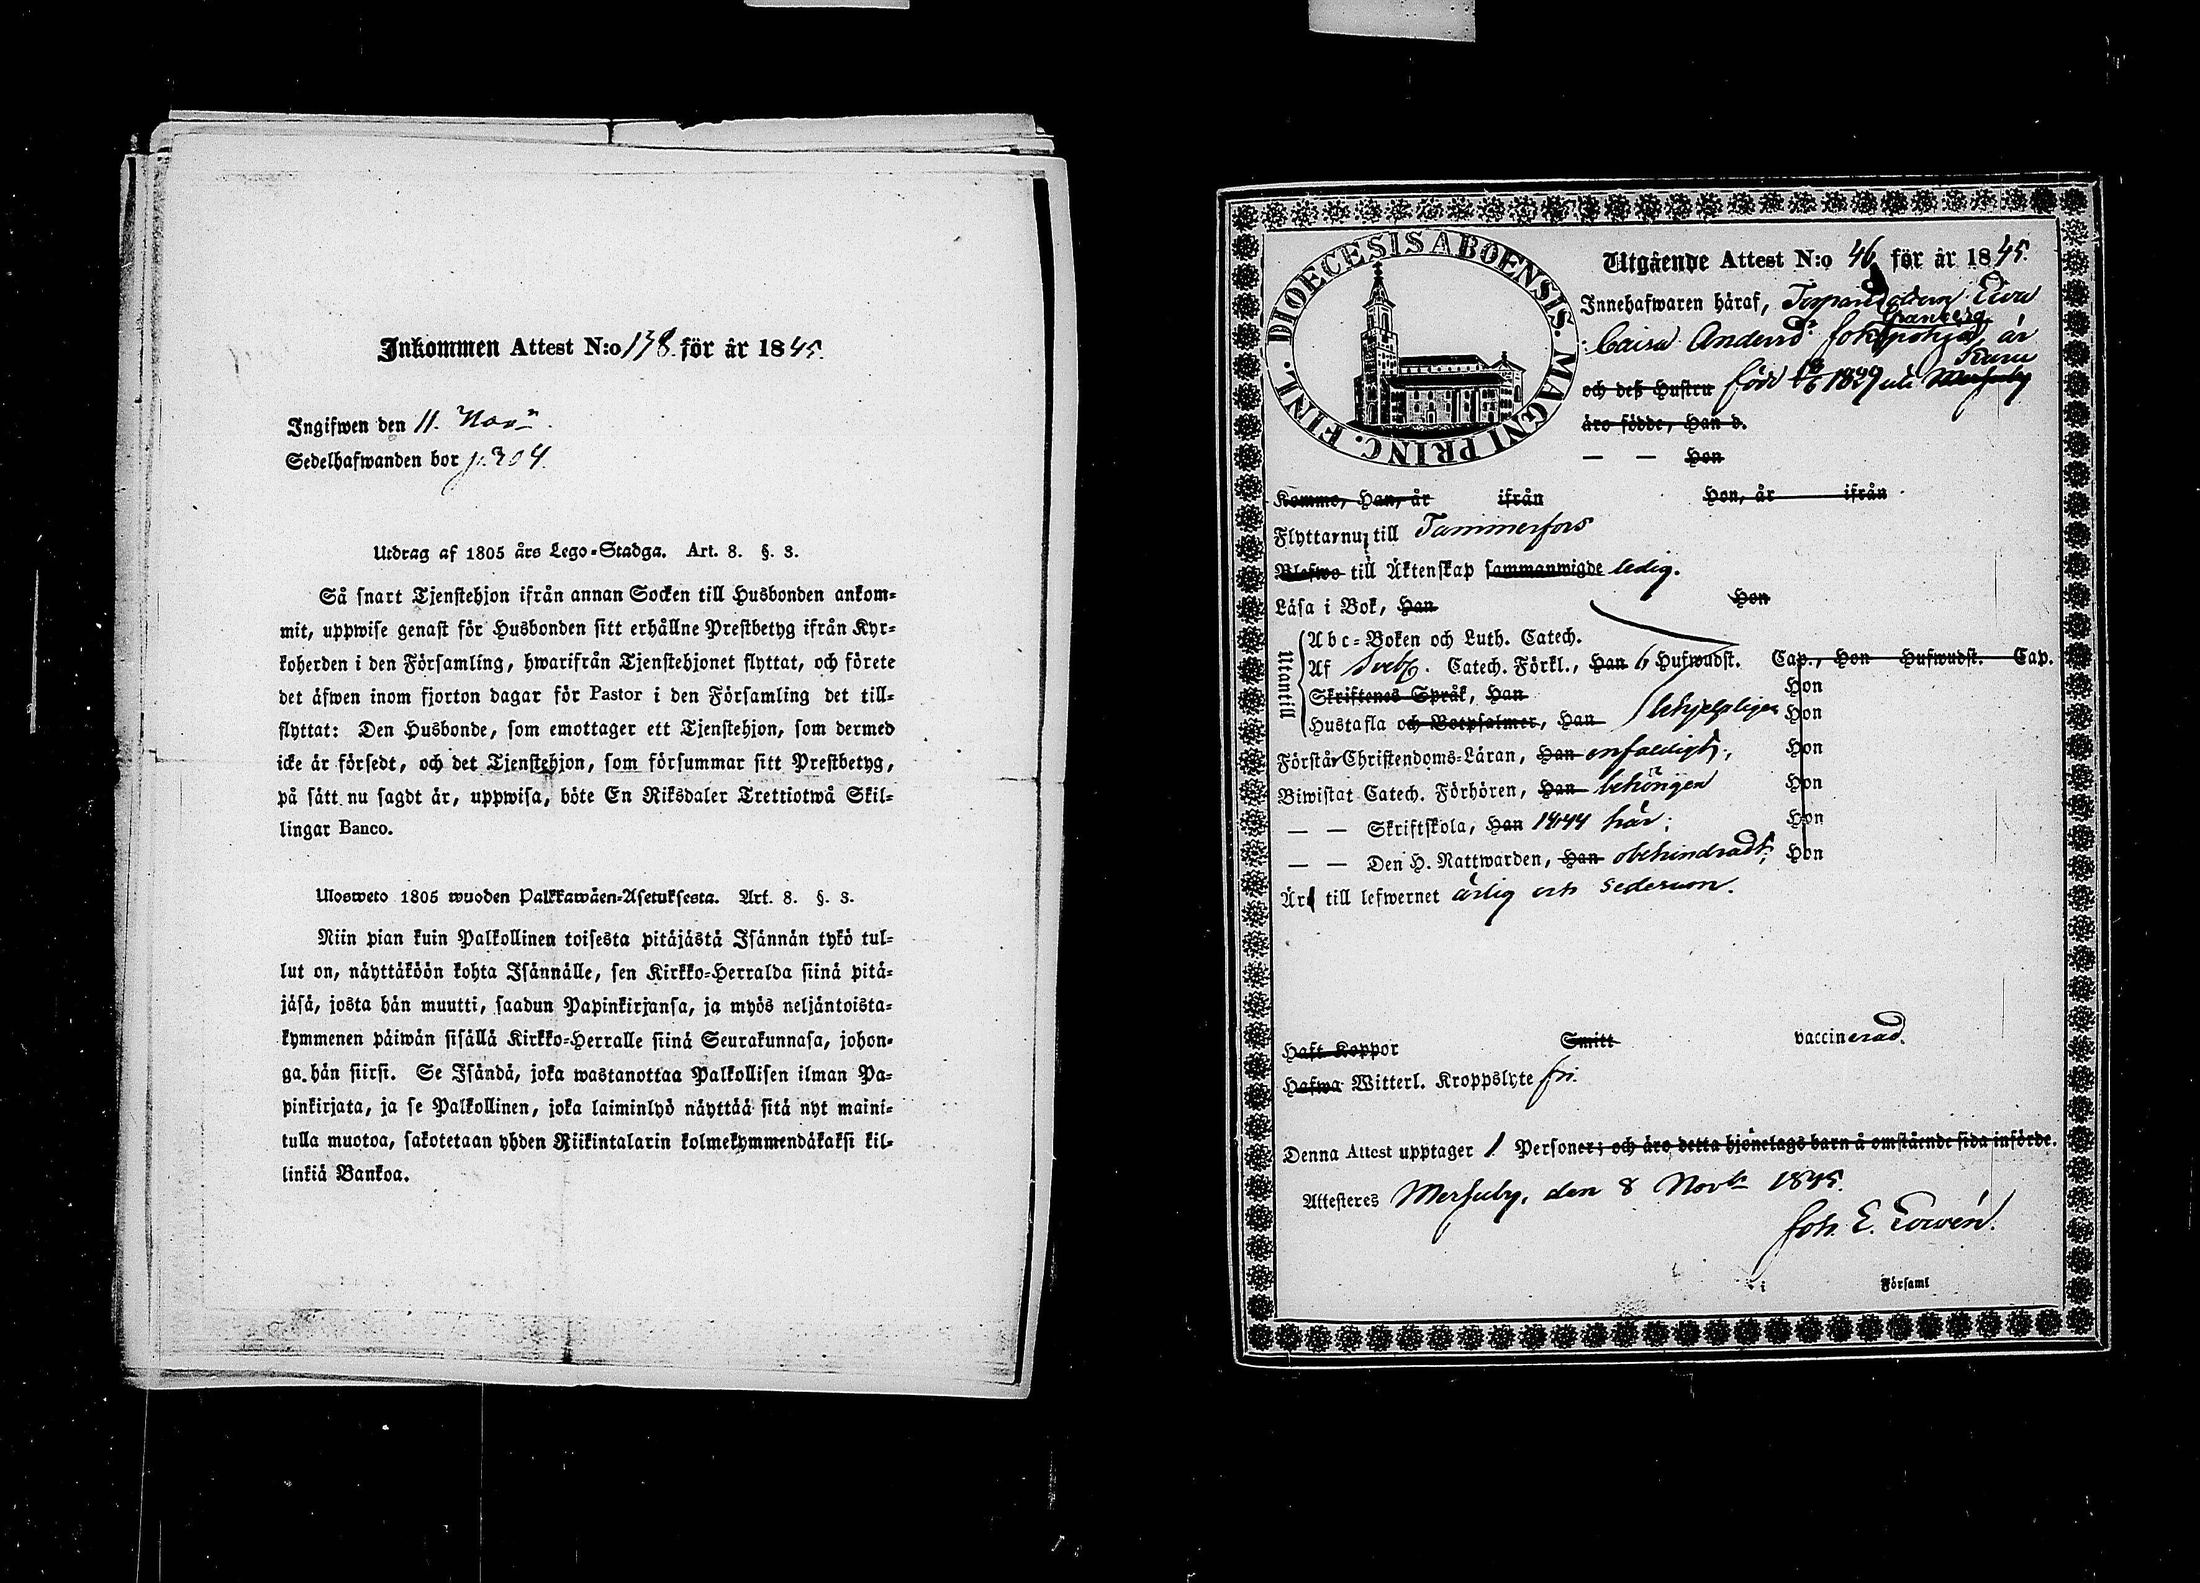 Inkommen Attest N:o 138 för år 1845.
Ingifwen den 11. Nov:r
Sedelhafwanden bor p. 304.
Utdrag af 1805 års Lego-Stadga. Art. 8. §. 3.
Så snart Tjenstehjon ifrån annan Socken till Husbonden ankom-
mit, uppwise genast för Husbonden sitt erhållne Prestbetyg ifrån Kyr-
koherden i den Församling, hwarifrån Tjenstehjonet flyttat, och förete
det äfwen inom fjorton dagar för Pastor i den Församling det till-
flyttat: Den Husbonde, som emottager ett Tjenstehjon, som dermed
icke är försedt, och det Tjenstehjon, som försummar sitt Prestbetyg,
på sätt nu sagdt är, uppwisa, böte En Riksdaler Trettiotwå Skil-
lingar Banco.
Ulosweto 1805 wuoden Palkkawäen-Asetuksesta. Art. 8. §. 3.
Niin pian kuin Palkollinen toisesta pitäjästä Isännän tykö tul-
lut on, näyttäköön kohta Isännälle, sen Kirkko-Herralda siinä pitä-
jäsä, josta hän muutti, saadun Papinkirjansa, ja myös neljäntoista-
kymmenen päiwän sisällä Kirkko-Herralle siinä Seurakunnasa, johon-
ga hän siirsi. Se Isändä, joka wastanottaa Palkollisen ilman Pa-
pinkirjata, ja se Palkollinen, joka laiminlyö näyttää sitä nyt maini-
tulla muotoa, sakotetaan yhden Riikintalarin kolmekymmendäkaksi kil-
linkiä Bankoa.
DIOECESIS ABOENSIS. MAGNI PRINC. FINL.
Utgående Attest N:o 46 för år 1845.
Innehafwaren häraf, Torpared:n Ewa
Granberg
Caisa Andersd:r är
Kuru
och deß Hustru född 1829 uti Messuby
äro födde, Han d.
— — Hon
Komne, Han, år ifrån Hon, år ifrån
Flyttar nu till Tammerfors
Blefwo till Äktenskap sammanwigde ledig.
Läsa i Bok, Han Hon
Utantill
Abc-Boken och Luth. Catech.
Af Sveb. Catech. Förkl., Han 6 Hufwudst. Cap., Hon Hufwudst. Cap.
Skriftenes Språk, Han Hon
Hustafla och Botpsalmer, Han behjelpligen Hon
Förstår Christendoms-Läran, Han enfaldigt; Hon
Biwistat Catech. Förhören, Han behörigen Hon
— — Skriftskola, Han 1844 här; Hon
— — Den H. Nattwarden, Han obehindradt; Hon
Är till lefwernet ärlig och sedesam.
Haft Koppor Smitt vaccinerad.
Hafwa Witterl. Kroppslyte fri.
Denna Attest upptager 1 Personer; och äro detta hjonelags barn å omstående sida införde.
Attesteres Messuby, den 8 Nov:br 1845.
Joh. E. Lowén.
Församl